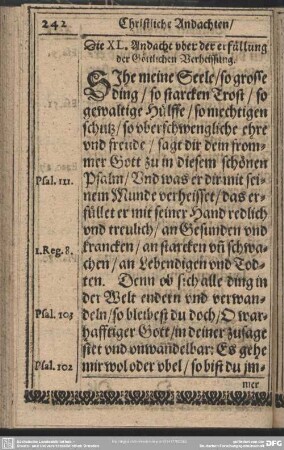 242 Christliche Andachten/
Die XL. Andacht vber der erfüllung
der Göttlichen Verheissung.
SIhe meine Seele/so grosse
ding / so starcken Trost / so
gewaltige Hülffe/so mechtigen
schutz/so vberschwengliche ehre
vnd freude / sagt dir dein from-
mer Gott zu in diesem schönen
Psal. 111. Psalm/ Vnd was er dir mit sei-
nem Munde verheisset/das er-
füllet er mit seiner Hand redlich
vnd treulich/ an Gesunden vnd
1. Reg. 8. krancken/an starcken vn̄ schwa-
chen/an Lebendigen vnd Tod-
ten. Denn ob sich alle ding in
der Welt endern vnd verwan-
Psal. 105 deln/so bleibest du doch/O war-
hafftiger Gott/in deiner zusage
stet vnd vnwandelbar: Es gehe
Psal. 102 mir wol oder vbel/so bist du im-
mer
DFG